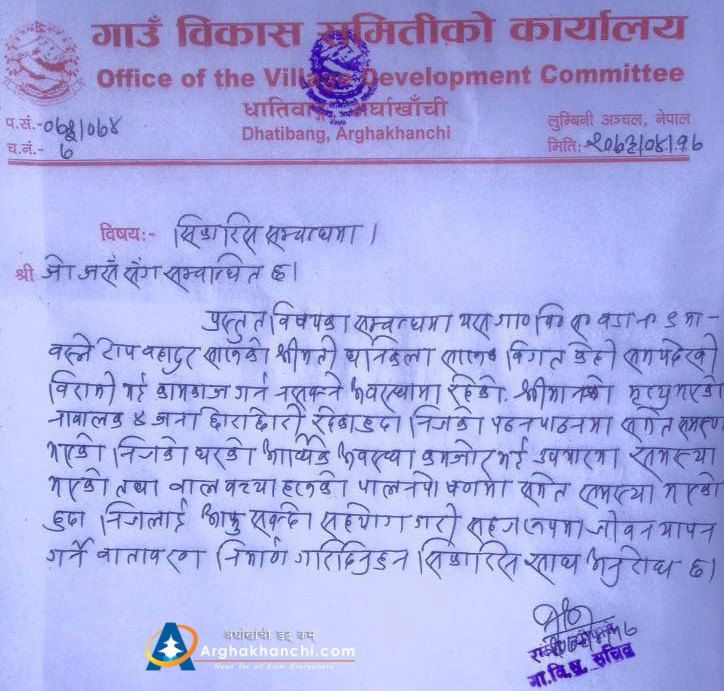 गाउँ विकास समितीको कार्यालय
Office of the Village Development Committee
धातिवाङ, अर्घाखाँची
Dhatibang, Arghakhanchi
लुम्बिनी अञ्चल, नेपाल
प.सं.-
च.नं.- ७
मितिः-
विषयः- सिफारिस सम्वन्धमा।
श्री जो जसँ सँग सम्वन्धित छ।
प्रस्तुत विषयका सम्वन्धमा यस गा० वि० स० वडा नं ८ मा-
वस्ने टोप वहादुर सारुको श्रीमती विगत केही समयदेखी
विरामी भई कामकाज गर्न नसक्ने अवस्थामा रहेको श्रीमानको मृत्यु भएको
नावालक ४ जना छोरा छोरी रहेका हुदा निजको पठनपाठनमा समेत समस्या
भएको निजको घरको आर्थिक अवस्था कमजोर भई उपचारमा समस्या
भएको तथा वाल वच्चा हरुको पालनपोषणमा समेत समस्या भएको
हुदा निजलाई आफु सक्दो सहयोग गरी सहज रुपमा जीवन यापन
गर्ने वातावरण निर्माण गरिदिनुहुन सिफारिस साथ अनुरोध छ।
गा.वि.स. सचिव
अर्घाखाँची डट् कम्
Arghakhanchi.com
News for all from Everywhere